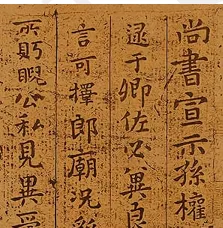 尚書宣示孫權
逮于卿佐必冀良
言可擇郎廟況繇
所貺公私見異愛